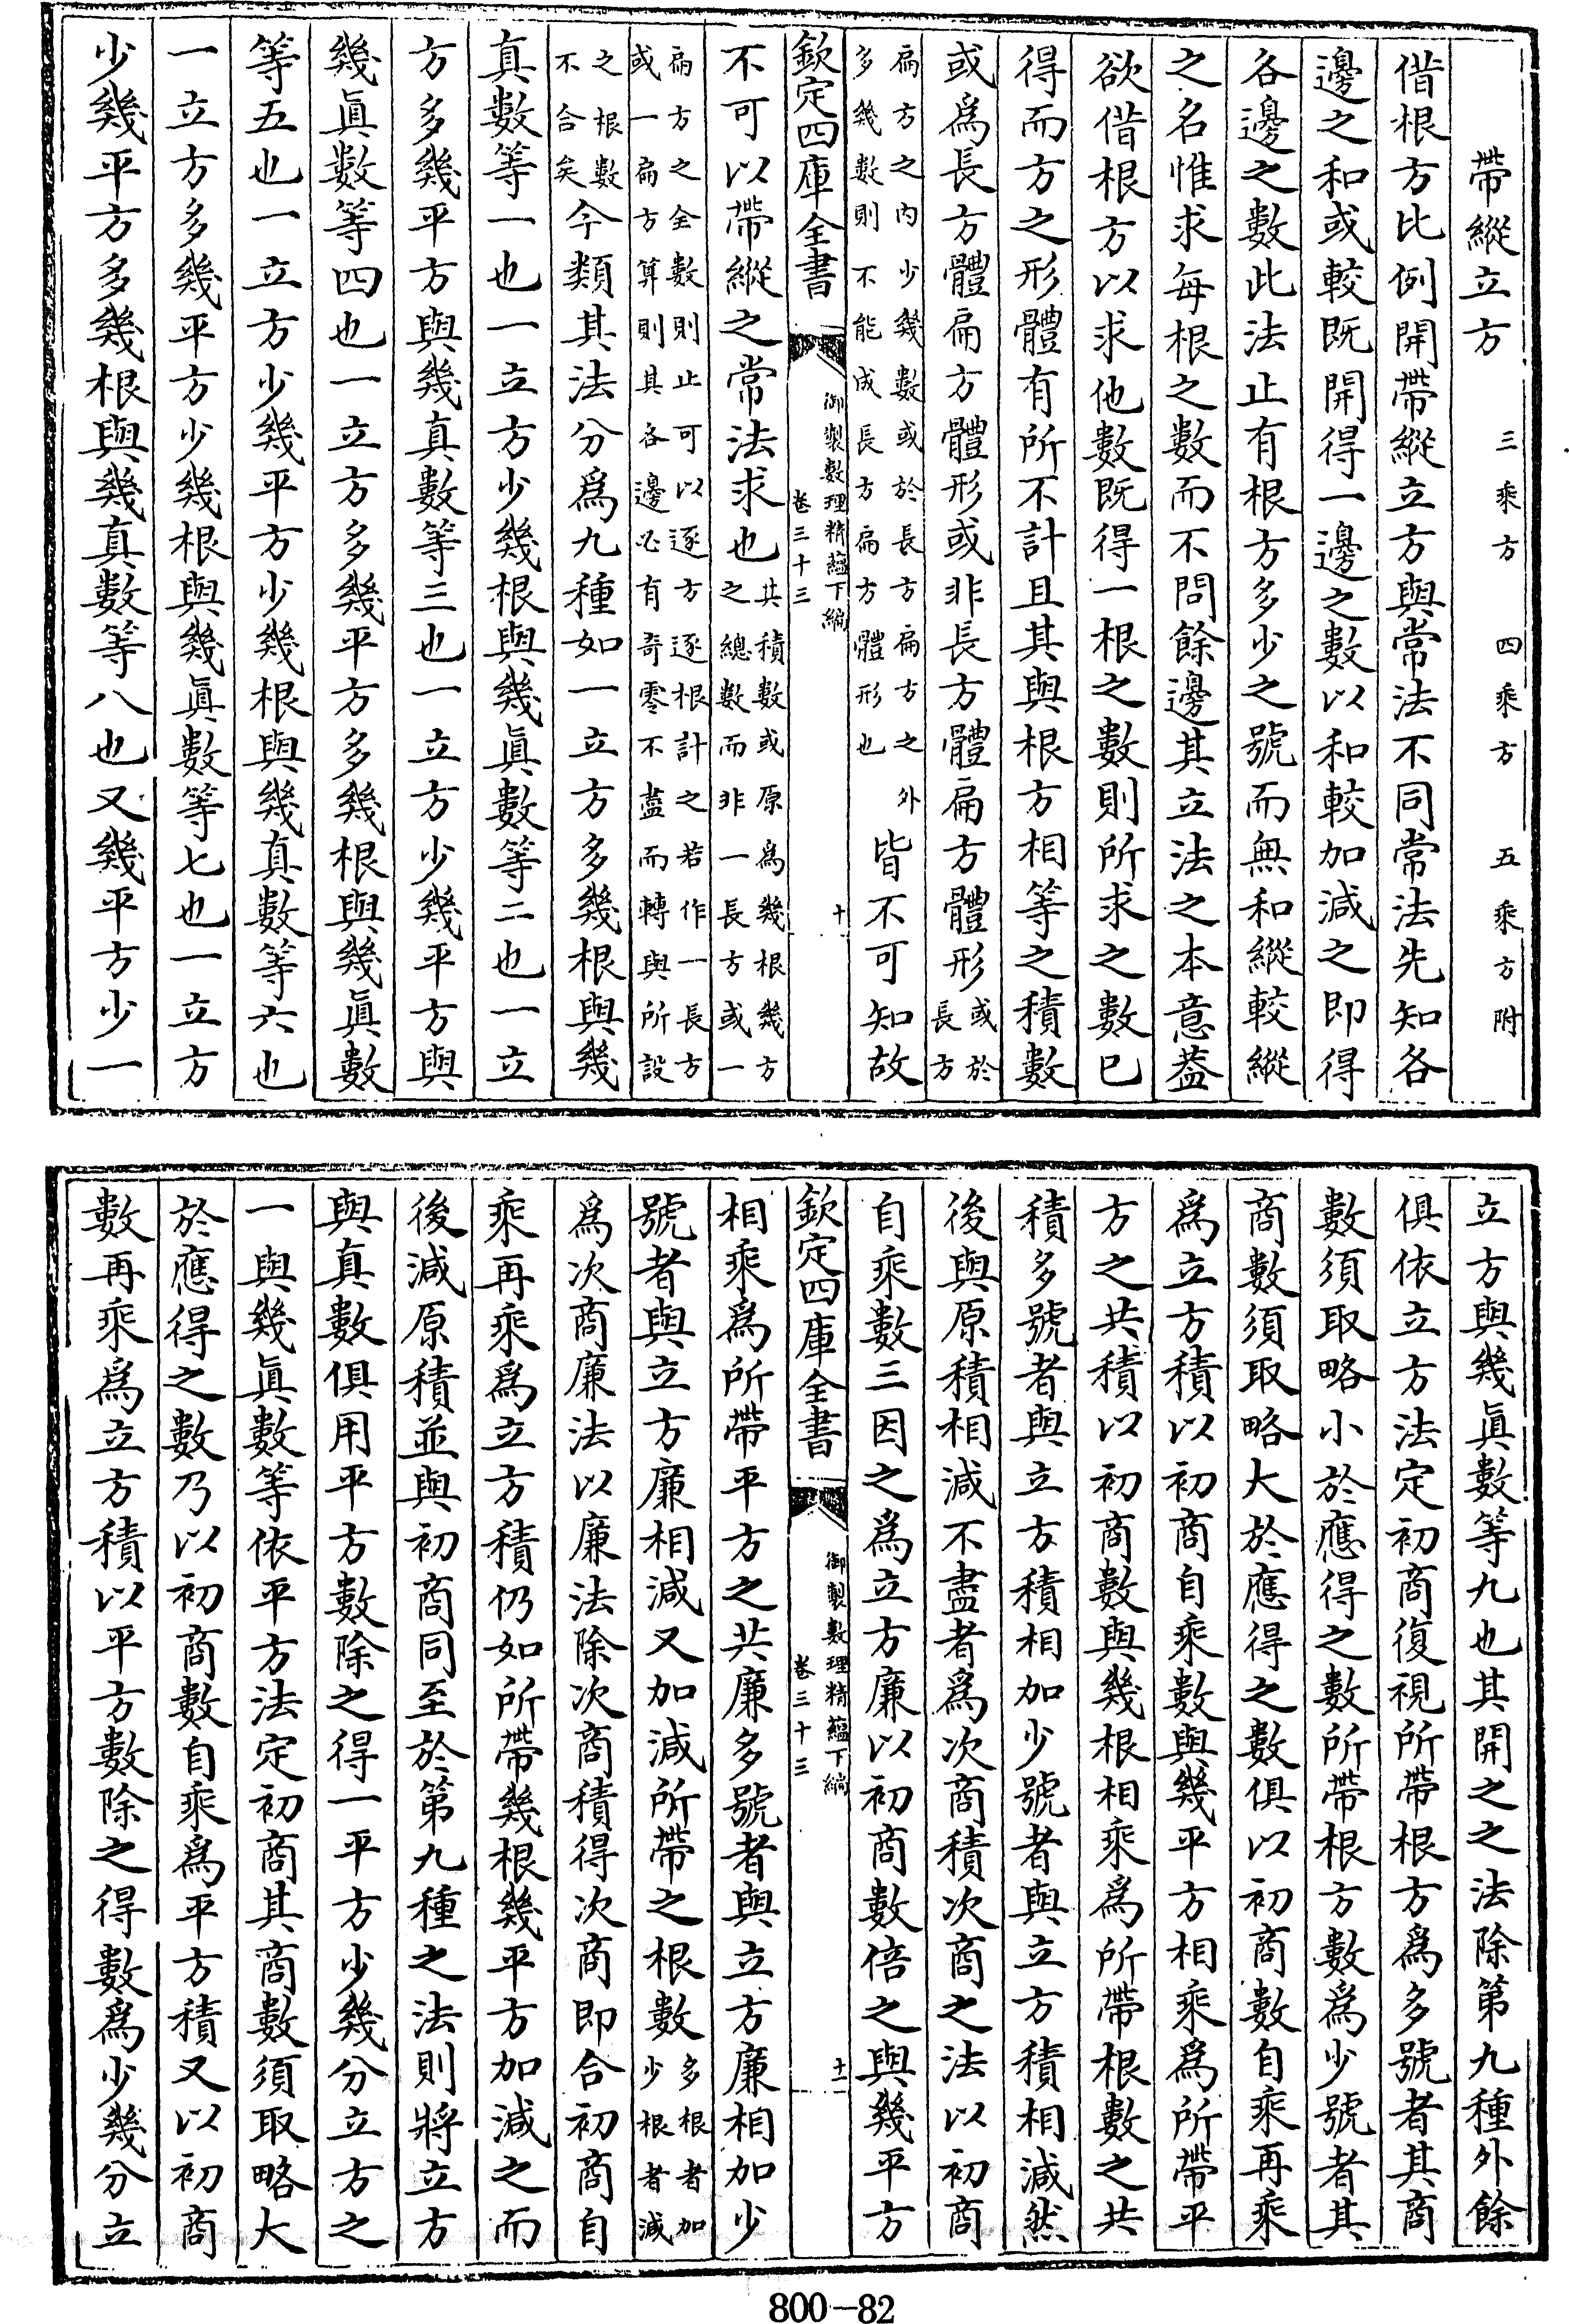 帶縱立方　三乘方　四乘方　五乘方附
借根方比例開帶縱立方與常法不同常法先知各
邊之和或較既開得一邊之數以和較加減之即得
各邊之數此法止有根方多少之號而無和縱較縱
之名惟求每根之數而不問餘邊其立法之本意葢
欲借根方以求他數既得一根之數則所求之數已
得而方之形體有所不計且其與根方相等之積數
或爲長方體扁方體形或非長方體扁方體形或於長方
扁方之内少幾數或於長方扁方之外多幾數則不能成長方扁方體形也皆不可知故
欽定四庫全書　御製數理精蘊下編卷三十三　十
不可以帶縱之常法求也其積數或原爲幾根幾方之總數而非一長方或一
扁方之全數則止可以逐方逐根計之若作一長方或一扁方算則其各邊必有奇零不盡而轉與所設
之根數不合矣今類其法分爲九種如一立方多幾根與幾
真數等一也一立方少幾根與幾真數等二也一立
方多幾平方與幾真數等三也一立方少幾平方與
幾真數等四也一立方多幾平方多幾根與幾真數
等五也一立方少幾平方少幾根與幾真數等六也
一立方多幾平方少幾根與幾真數等七也一立方
少幾平方多幾根與幾真數等八也又幾平方少一
立方與幾真數等九也其開之之法除第九種外餘
俱依立方法定初商復視所帶根方爲多號者其商
數須取略小於應得之數所帶根方數爲少號者其
商數須取略大於應得之數俱以初商數自乘再乘
爲立方積以初商自乘數與幾平方相乘爲所帶平
方之共積以初商數與幾根相乘爲所帶根數之共
積多號者與立方積相加少號者與立方積相減然
後與原積相減不盡者爲次商積次商之法以初商
自乘數三因之爲立方廉以初商數倍之與幾平方
欽定四庫全書　御製數理精蘊下編卷三十三　十一
相乘爲所帶平方之共廉多號者與立方廉相加少
號者與立方廉相減又加減所帶之根數多根者加少根者減
爲次商廉法以廉法除次商積得次商即合初商自
乘再乘爲立方積仍如所帶幾根幾平方加減之而
後減原積並與初商同至於第九種之法則將立方
與真數俱用平方數除之得一平方少幾分立方之
一與幾真數等依平方法定初商其商數須取略大
於應得之數乃以初商數自乘爲平方積又以初商
數再乘爲立方積以平方數除之得數爲少幾分立
800-82